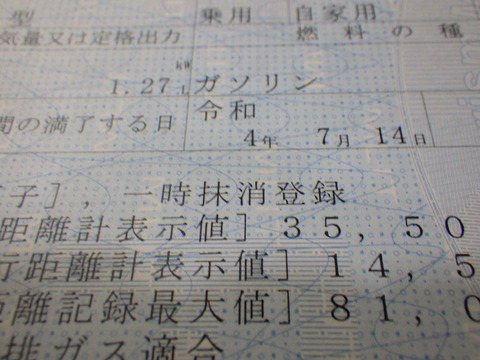 型 乗用 自家用
気量又は定格出力 燃料の種
kW
1.27 L ガソリン
間の満了する日 令和
4年 7月 14日
子], 一時抹消登録
距離計表示値] 35, 50
行距離計表示値] 14, 5
距離記録最大値] 81, 0
排ガス適合